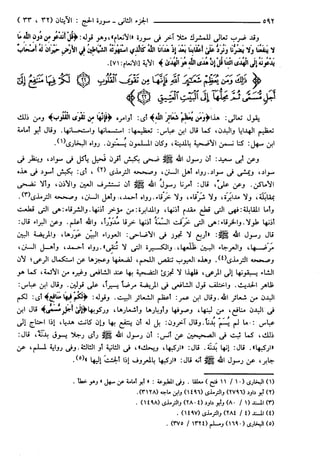 ٥٩٢ الجزء الثاني ـ سورة الحج : الآيتان (٣٢ ، ٣٣)
وقد ضرب تعالى للمشرك مثلاً آخر في سورة «الأنعام»، وهو قوله: ﴿قُلْ أَنَدْعُو مِن دُونِ اللَّهِ مَا
لَا يَنفَعُنَا وَلَا يَضُرُّنَا وَنُرَدُّ عَلَىٰ أَعْقَابِنَا بَعْدَ إِذْ هَدَانَا اللَّهُ كَالَّذِي اسْتَهْوَتْهُ الشَّيَاطِينُ فِي الْأَرْضِ حَيْرَانَ لَهُ أَصْحَابٌ
يَدْعُونَهُ إِلَى الْهُدَى ائْتِنَا قُلْ إِنَّ هُدَى اللَّهِ هُوَ الْهُدَىٰ﴾ الآية [الأنعام: ٧١].
ذَٰلِكَ وَمَن يُعَظِّمْ شَعَائِرَ اللَّهِ فَإِنَّهَا مِن تَقْوَى الْقُلُوبِ ﴿٣٢﴾ لَكُمْ فِيهَا مَنَافِعُ إِلَىٰ
أَجَلٍ مُّسَمًّى ثُمَّ مَحِلُّهَا إِلَى الْبَيْتِ الْعَتِيقِ ﴿٣٣﴾
يقول تعالى: هذا ﴿وَمَن يُعَظِّمْ شَعَائِرَ اللَّهِ﴾ أي: أوامره ﴿فَإِنَّهَا مِن تَقْوَى الْقُلُوبِ﴾ ومن ذلك
تعظيم الهدايا والبدن، كما قال ابن عباس: تعظيمها: استسمانها واستحسانها. وقال أبو أمامة
بن سهل: كنا نسمن الأضحية بالمدينة، وكان المسلمون يُسمّنون. رواه البخاري(١).
وعن أبي سعيد: أن رسول الله ﷺ ضحى بكبش أقرن فحيل يأكل في سواد، وينظر في
سواد، ويمشي في سواد. رواه أهل السنن، وصححه الترمذي(٢)، أي: بكبش أسود في هذه
الأماكن. وعن علي، قال: أمرنا رسول الله ﷺ أن نستشرف العين والأذن، وألا نضحي
بمقابلة، ولا مدابرة، ولا شرقاء، ولا خرقاء. رواه أحمد، وأهل السنن، وصححه الترمذي(٣).
وأما المقابلة: فهي التي قطع مقدم أذنها، والمدابرة: من مؤخر أذنها. والشرقاء: هي التي قطعت
أذنها طولا. والخرقاء: هي التي خرقت السمة أذنها خرقا مُدَوَّراً، والله أعلم. وعن البراء قال:
قال رسول الله ﷺ: «أربع لا تجوز في الأضاحي: العوراء البين عَوَرها، والمريضة البين
مَرَضها، والعرجاء البين ظلعها، والكسيرة التي لا تُنقي». رواه أحمد، وأهل السنن،
وصححه الترمذي(٤). وهذه العيوب تنقص اللحم، لضعفها وعجزها عن استكمال الرعي؛ لأن
الشاء يسبقونها إلى المرعى، فلهذا لا تجزئ التضحية بها عند الشافعي وغيره من الأئمة، كما هو
ظاهر الحديث. واختلف قول الشافعي في المريضة مرضاً يسيراً، على قولين. وقال ابن عباس:
البدن من شعائر الله. وقال ابن عمر: أعظم الشعائر البيت. وقوله: ﴿لَكُمْ فِيهَا مَنَافِعُ﴾ أي: لكم
في البدن منافع، من لبنها، وصوفها وأوبارها وأشعارها، وركوبها ﴿إِلَىٰ أَجَلٍ مُّسَمًّى﴾ قال ابن
عباس: ما لم يسم بدناً. وقال آخرون: بل له أن ينتفع بها وإن كانت هديا، إذا احتاج إلى
ذلك، كما ثبت في الصحيحين عن أنس: أن رسول الله ﷺ رأى رجلا يسوق بدنة، قال:
«اركبها». قال: إنها بدنة. قال: «اركبها، ويحك»، في الثانية أو الثالثة. وفي رواية لمسلم، عن
جابر، عن رسول الله ﷺ أنه قال: «اركبها بالمعروف إذا ألجئت إليها»(٥).
(١) البخاري (١٠ / ١١ فتح) معلقا . وفي المطبوعة : « أبو أمامة عن سهل » وهو خطأ .
(٢) أبو داود (٢٧٩٦) والترمذي (١٤٩٦) وابن ماجه (٣١٢٨) .
(٣) المسند (١ / ٨٠) وأبو داود (٢٨٠٤) والترمذي (١٤٩٨) .
(٤) المسند (٤ / ٢٨٤) والترمذي (١٤٩٧) .
(٥) البخاري (١٦٩٠) ومسلم (١٣٢٤ / ٣٧٥) .